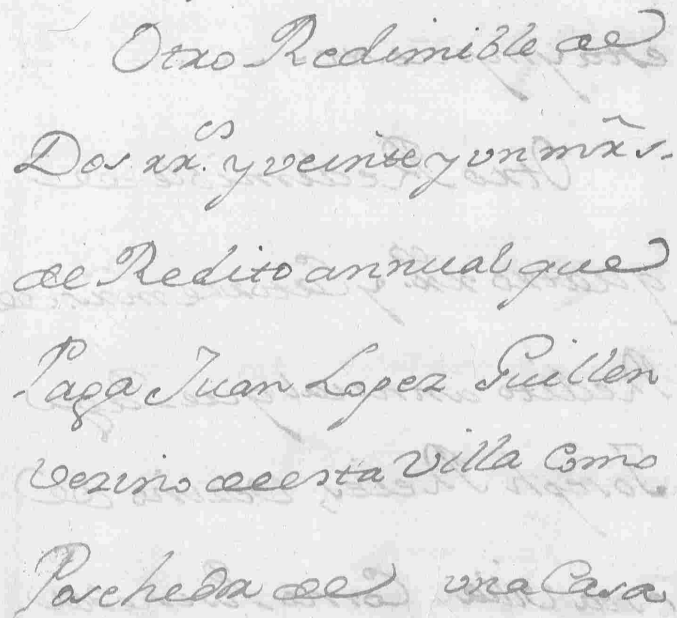 Otro Redimible de
Dos rr.^es y veinte y un mr̃s.
de Redito annual que
Paga Juan Lopez Guillen
vezino de esta Villa Como
Posehedor de una Casa